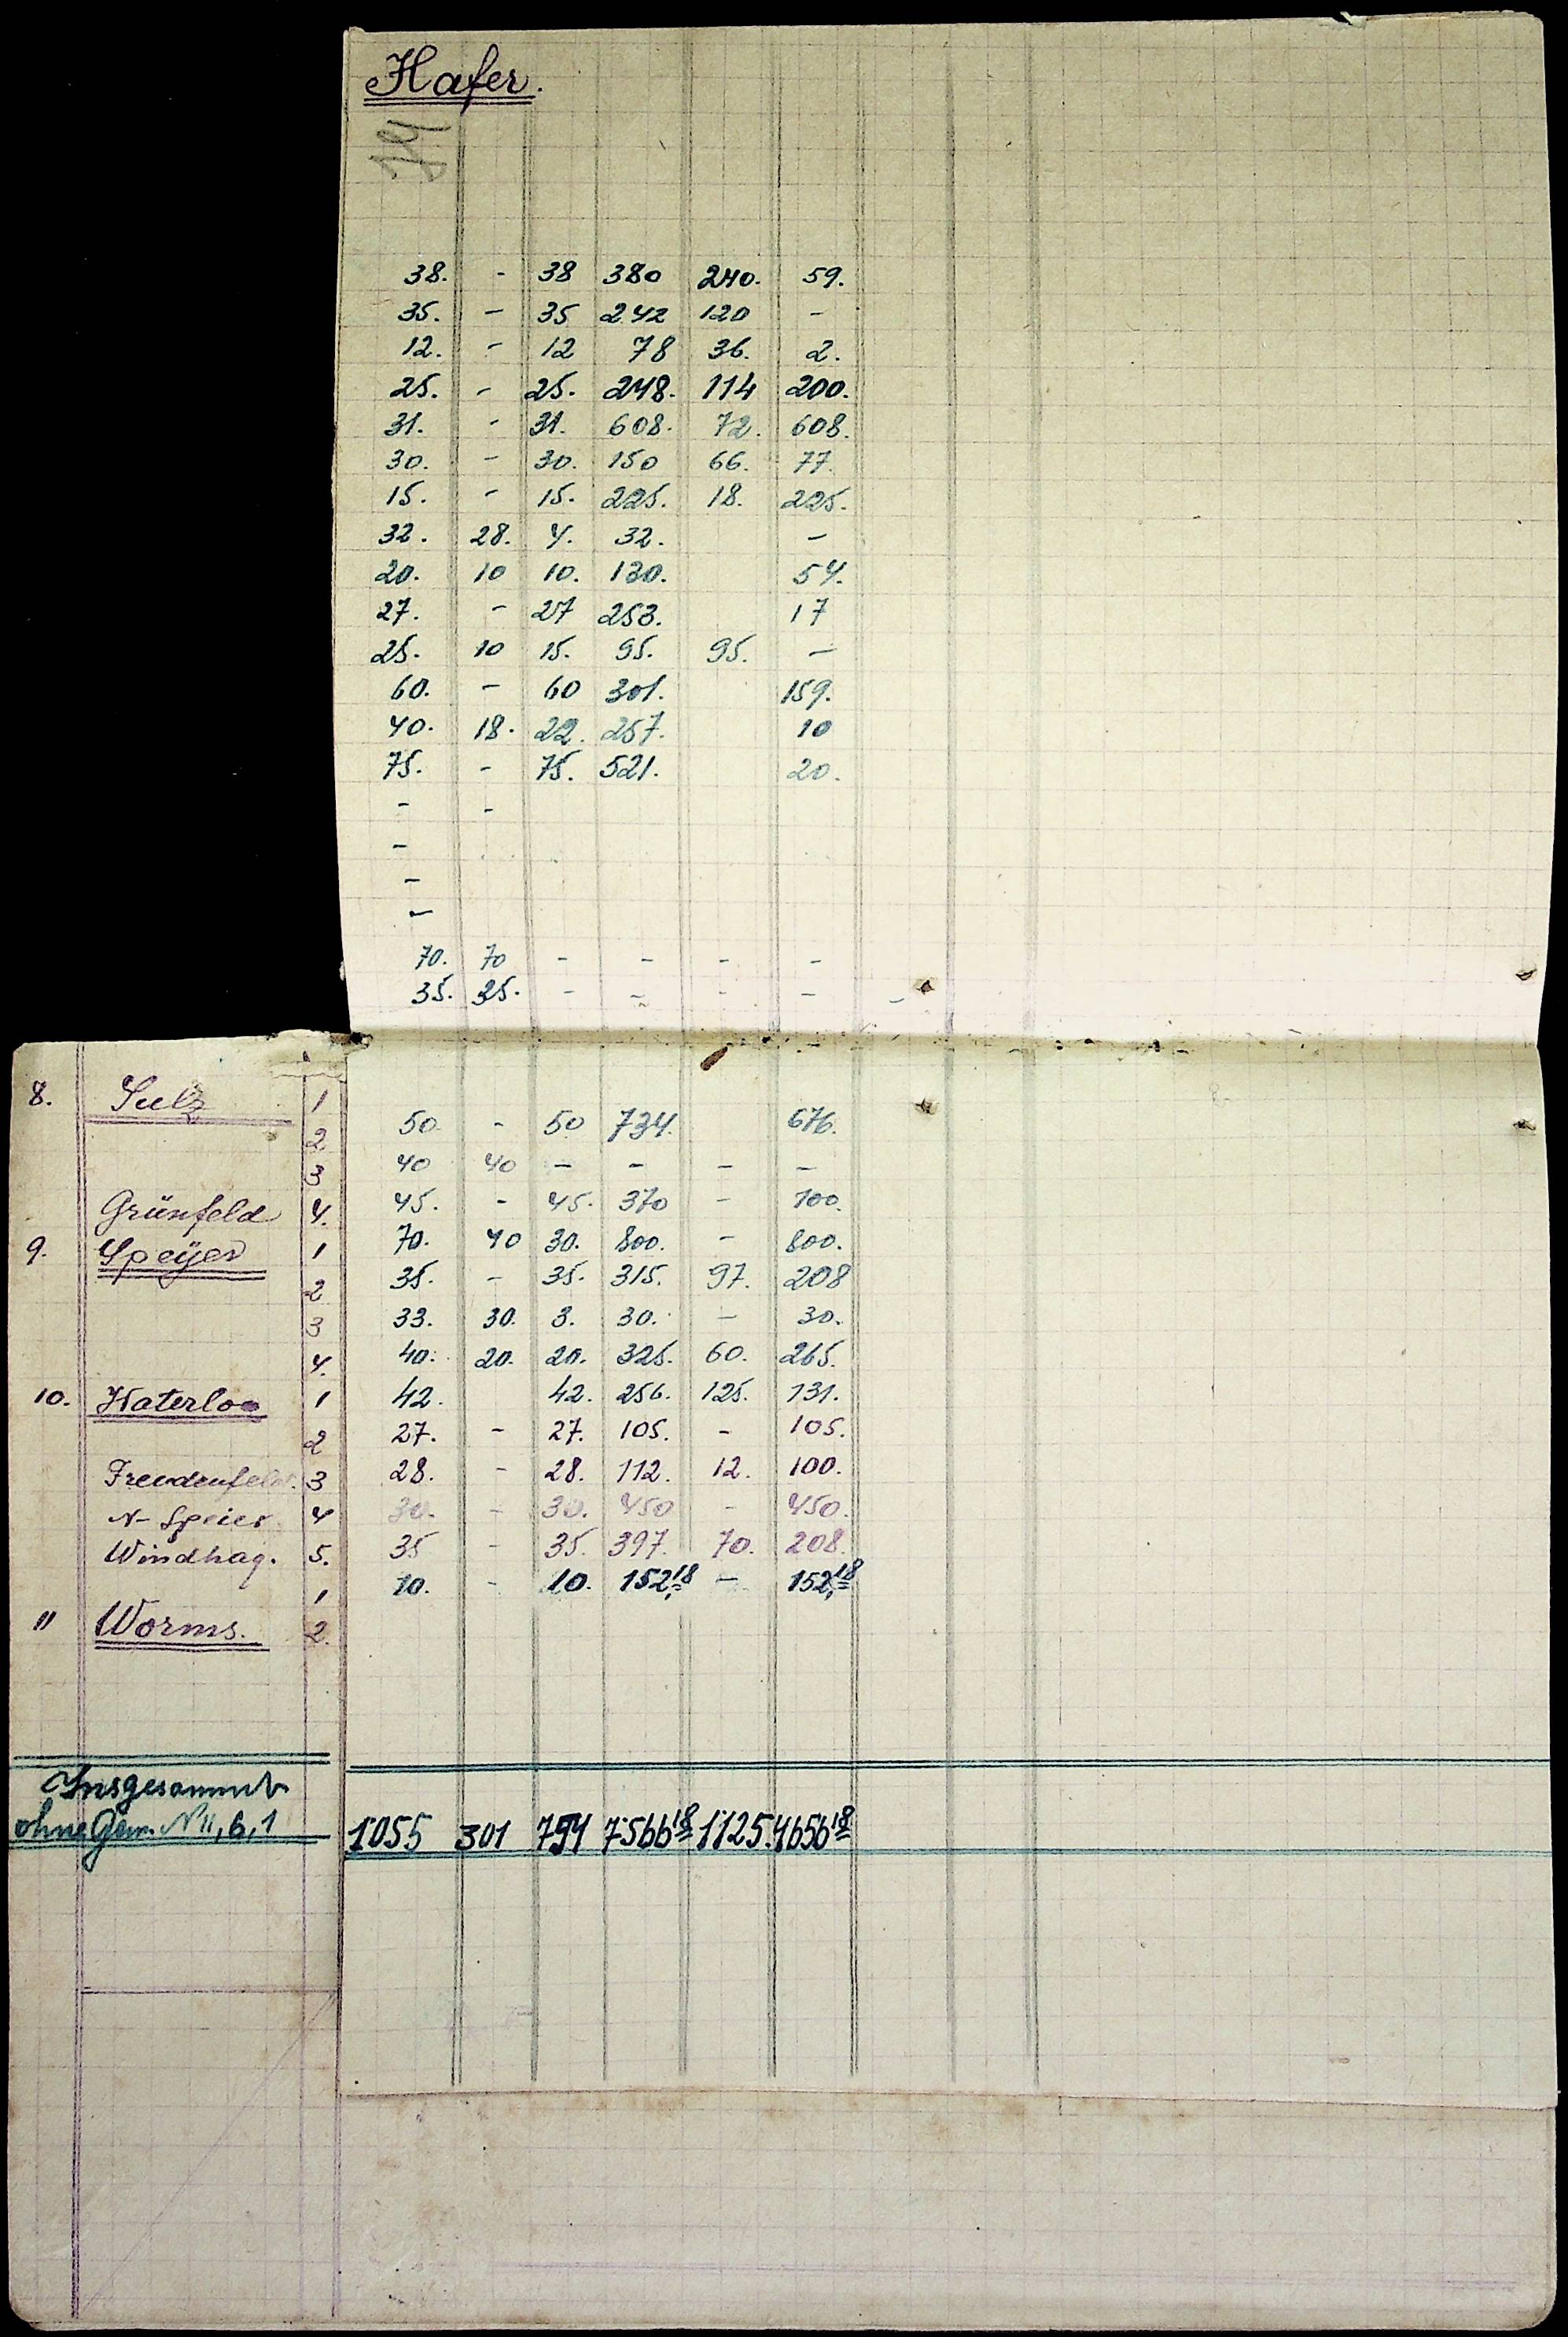 Hafer.
38. - 38 380 240. 59.
35. - 35 242 120 -
12. - 12 78 36. 2.
25. - 25. 248. 114 200.
31. - 31. 608. 72. 608.
30. - 30. 150 66. 77.
15. - 15. 225. 18. 225.
32. 28. 4. 32. -
20. 10 10. 130. 54.
27. - 27 253. 17
25. 10 15. 95. 95. -
60. - 60 301. 159.
40. 18. 22. 257. 10
75. - 75. 521. 20.
- -
-
-
-
70. 70 - - - -
35. 35. - - - - -
8. Sulz 1
2 50 - 50 734. 676.
3 40 40 - - - -
Grünfeld 4. 45. - 45. 370 - 100.
9. Speÿer 1 70. 40 30. 800. - 800.
2 35. - 35. 315. 97. 208
3 33. 30. 3. 30. - 30.
4. 40. 20. 20. 325. 60. 265.
10. Waterloo 1 42. 42. 256. 125. 131.
2 27. - 27. 105. - 105.
Freudenfeld. 3 28. - 28. 112. 12. 100.
N- Speier 4 30. - 30. 450 - 450.
Windhag. 5. 35 - 35. 397. 70. 208.
1 10. - 10. 152,18 - 152,18
11 Worms. 2.
Insgesammt
ohne Gem. N 11, 6, 1 1055 301 754 7566 18 1125. 4656 18